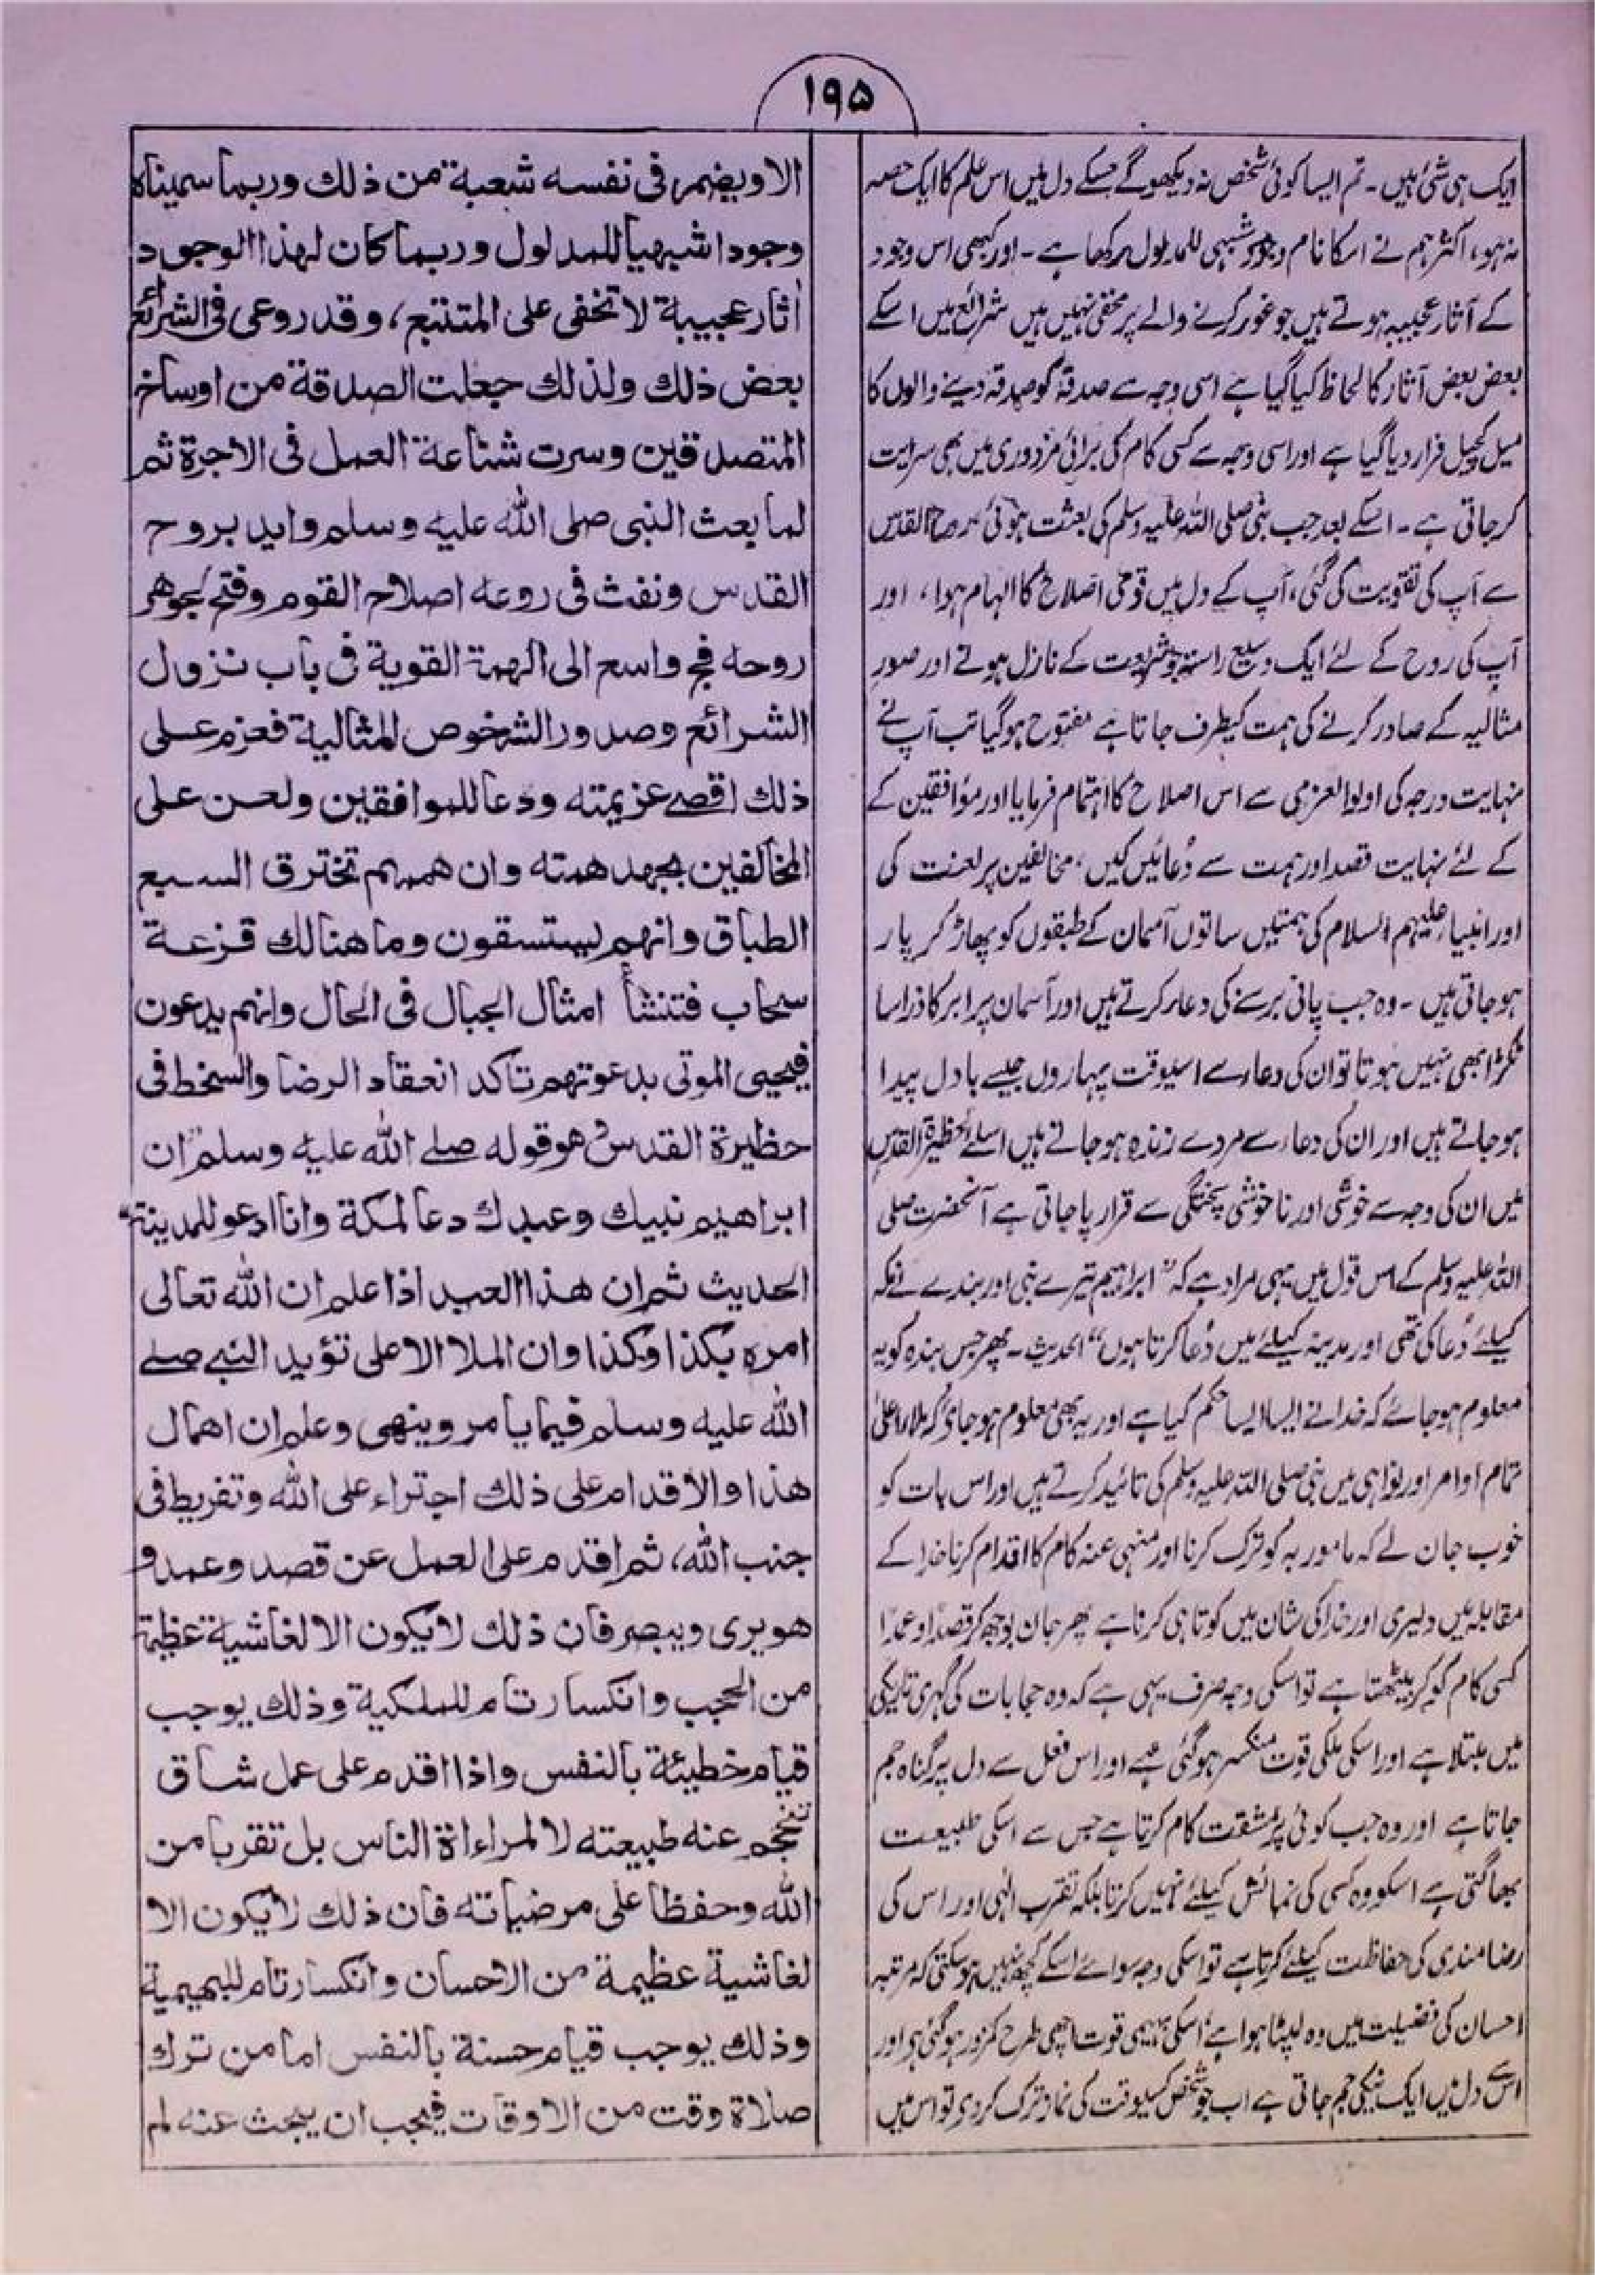 ۱۹۵
ایک ہی شئ ہیں۔ تم ایسا کوئی شخص نہ دیکھو گے جسکے دل میں اس علم کا ایک حصہ
نہ ہو، اکثر ہم نے اسکا نام وجود شبہی للمدلول رکھا ہے۔ اور کبھی اس وجود
کے آثار عجیبہ ہوتے ہیں جو غور کرنے والے پر مخفی نہیں ہیں شرائع میں اسکے
بعض بعض آثار کا لحاظ کیا گیا ہے اسی وجہ سے صدقہ کو صدقہ دینے والوں کا
میل کچیل قرار دیا گیا ہے اور اسی وجہ سے کسی کام کی برائی مزدوری میں بھی سرایت
کر جاتی ہے۔ اسکے بعد جب نبی صلی اللہ علیہ وسلم کی بعثت ہوئی روح القدس
سے آپ کی تقویت کی گئی، آپ کے دل میں قومی اصلاح کا الہام ہوا، اور
آپ کی روح کے لئے ایک وسیع راستہ جو شریعت کے نازل ہونے اور صورِ
مثالیہ کے صادر کرنے کی ہمت کیطرف جاتا ہے مفتوح ہو گیا تب آپ نے
نہایت درجہ کی اولوالعزمی سے اس اصلاح کا اہتمام فرمایا اور موافقین کے
کے لئے نہایت قصد اور ہمت سے دُعائیں کیں، مخالفین پر لعنت کی
اور انبیاء علیہم السلام کی ہمتیں ساتوں آسمان کے طبقوں کو پھاڑ کر پار
ہو جاتی ہیں۔ وہ جب پانی برسنے کی دعاء کرتے ہیں اور آسمان پر ابر کا ذرا سا
ٹکڑا بھی نہیں ہوتا تو ان کی دعاء سے اسیوقت پہاڑوں جیسے بادل پیدا
ہو جاتے ہیں اور ان کی دعاء سے مردے زندہ ہو جاتے ہیں اسلئے حظیرۃ القدس
میں ان کی وجہ سے خوشی اور ناخوشی پختگی سے قرار پا جاتی ہے آنحضرت صلی
اللہ علیہ وسلم کے اس قول میں یہی مراد ہے کہ "ابراہیم تیرے نبی اور بندے نے مکہ
کیلئے دُعا کی تھی اور مدینہ کیلئے میں دُعا کرتا ہوں" الحدیث۔ پھر جس بندہ کو یہ
معلوم ہو جائے کہ خدا نے ایسا ایسا حکم کیا ہے اور یہ بھی معلوم ہو جائے کہ ملاء اعلیٰ
تمام اوامر اور نواہی میں نبی صلی اللہ علیہ وسلم کی تائید کرتے ہیں اور اس بات کو
خوب جان لے کہ مامور بہ کو ترک کرنا اور منہی عنہ کام کا اقدام کرنا خدا کے
مقابلہ میں دلیری اور خدا کی شان میں کوتاہی کرنا ہے پھر جان بوجھ کر قصدًا و عمدًا
کسی کام کو کر بیٹھتا ہے تو اسکی وجہ صرف یہی ہے کہ وہ حجابات کی گہری تاریکی
میں مبتلا ہے اور اسکی ملکی قوت منکسر ہو گئی ہے اور اس فعل سے دل پر گناہ جم
جاتا ہے اور وہ جب کوئی پُر مشقت کام کرتا ہے جس سے اسکی طبیعت
بھاگتی ہے اسکو وہ کسی کی نمائش کیلئے نہیں کرتا بلکہ تقرب الٰہی اور اس کی
رضامندی کی حفاظت کیلئے کرتا ہے تو اسکی وجہ سوائے اسکے کچھ نہیں ہو سکتی کہ مرتبہ
احسان کی فضیلت میں وہ لپٹا ہوا ہے، اسکی بہیمی قوت اچھی طرح کمزور ہو گئی ہو اور
اس کے دل میں ایک نیکی جم جاتی ہے اب جو شخص کسیوقت کی نماز ترک کر دی تو اس میں
الا ويضمر فى نفسه شعبة من ذلك وربما سميناه
وجودا شبهيا للمدلول وربما كان لهذا الوجود
أثار عجيبة لا تخفى على المتتبع، وقد روعى فى الشرائع
بعض ذلك ولذلك جعلت الصدقة من اوساخ
المتصدقين وسرت شناعة العمل فى الاجرة ثم
لما بعث النبى صلى الله عليه وسلم وايد بروح
القدس ونفث فى روعه اصلاح القوم وفتح لجوهر
روحه فج واسع الى الهمة القوية فى باب نزول
الشرائع وصدور الشخوص المثالية فعزم على
ذلك اقصے عزيمته ودعا للموافقين ولعن على
المخالفين بجهد همته وان هممهم تخترق السبع
الطباق وانهم يستسقون وما هنالك قزعة
سحاب فتنشأ امثال الجبال فى الحال وانهم يدعون
فيحيى الموتى بدعوتهم تاكد انعقاد الرضا والسخط فى
حظيرة القدس وهو قوله صلے الله عليه وسلم "ان
ابراهيم نبيك وعبدك دعا لمكة وانا ادعو للمدينة"
الحديث ثم ان هذا العبد اذا علم ان الله تعالى
امره بكذا وكذا وان الملا الاعلى تؤيد النبے صلے
الله عليه وسلم فيما يامر وينهى وعلم ان اهمال
هذا والاقدام على ذلك اجتراء على الله وتفريط فى
جنب الله، ثم اقدم على العمل عن قصد وعمد و
هو يرى ويبصر فان ذلك لا يكون الا لغاشية عظيمة
من الحجب وانكسار تام للملكية وذلك يوجب
قيام خطيئة بالنفس واذا اقدم على عمل شاق
تنجم عنه طبيعته لا لمراءاة الناس بل تقربا من
الله وحفظا على مرضياته فان ذلك لا يكون الا
لغاشية عظيمة من الاحسان وانكسار تام للبهيمية
وذلك يوجب قيام حسنة بالنفس اما من ترك
صلاة وقت من الاوقات فيجب ان يبحث عنه لم